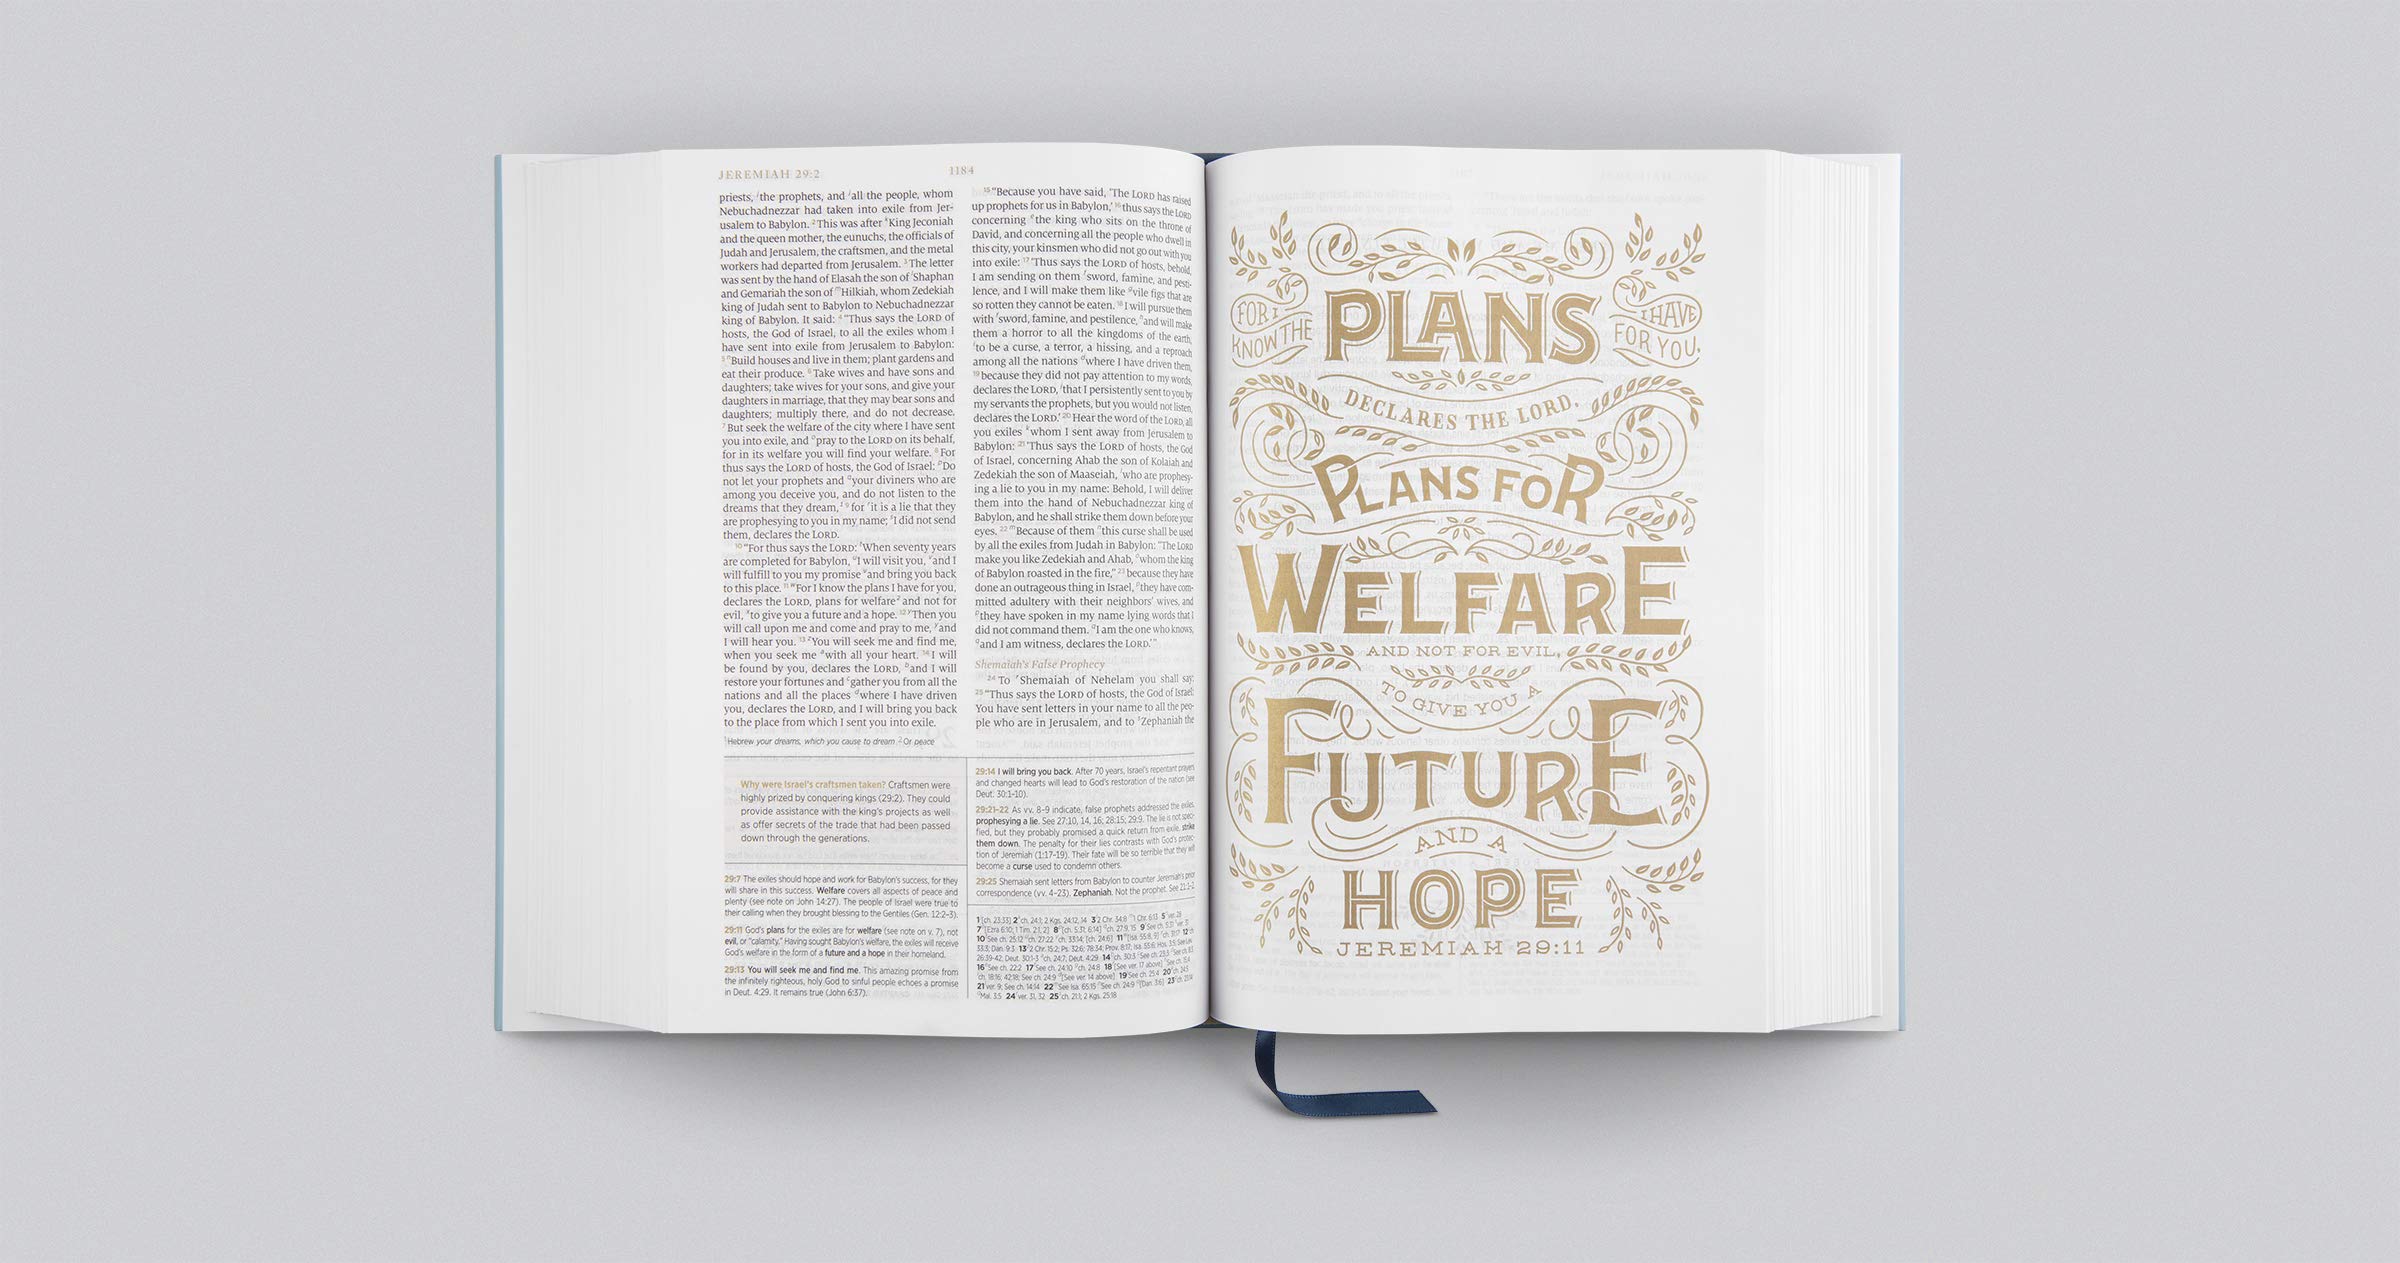 JEREMIAH 29:2
1184
priests, i the prophets, and j all the people, whom
Nebuchadnezzar had taken into exile from Jer-
usalem to Babylon. 2 This was after k King Jeconiah
and the queen mother, the eunuchs, the officials of
Judah and Jerusalem, the craftsmen, and the metal
workers had departed from Jerusalem. 3 The letter
was sent by the hand of Elasah the son of l Shaphan
and Gemariah the son of m Hilkiah, whom Zedekiah
king of Judah sent to Babylon to Nebuchadnezzar
king of Babylon. It said: 4 “Thus says the LORD of
hosts, the God of Israel, to all the exiles whom I
have sent into exile from Jerusalem to Babylon:
5 n Build houses and live in them; plant gardens and
eat their produce. 6 Take wives and have sons and
daughters; take wives for your sons, and give your
daughters in marriage, that they may bear sons and
daughters; multiply there, and do not decrease.
7 But seek the welfare of the city where I have sent
you into exile, and o pray to the LORD on its behalf,
for in its welfare you will find your welfare. 8 For
thus says the LORD of hosts, the God of Israel: p Do
not let your prophets and q your diviners who are
among you deceive you, and do not listen to the
dreams that they dream, 1 9 for r it is a lie that they
are prophesying to you in my name; s I did not send
them, declares the LORD.
10 “For thus says the LORD: t When seventy years
are completed for Babylon, u I will visit you, v and I
will fulfill to you my promise v and bring you back
to this place. 11 w For I know the plans I have for you,
declares the LORD, plans for welfare 2 and not for
evil, x to give you a future and a hope. 12 y Then you
will call upon me and come and pray to me, y and
I will hear you. 13 z You will seek me and find me,
when you seek me a with all your heart. 14 I will
be found by you, declares the LORD, b and I will
restore your fortunes and c gather you from all the
nations and all the places d where I have driven
you, declares the LORD, and I will bring you back
to the place from which I sent you into exile.
1 Hebrew your dreams, which you cause to dream 2 Or peace
15 “Because you have said, ‘The LORD has raised
up prophets for us in Babylon,’ 16 thus says the LORD
concerning e the king who sits on the throne of
David, and concerning all the people who dwell in
this city, your kinsmen who did not go out with you
into exile: 17 ‘Thus says the LORD of hosts, behold,
I am sending on them f sword, famine, and pesti-
lence, and I will make them like g vile figs that are
so rotten they cannot be eaten. 18 I will pursue them
with f sword, famine, and pestilence, h and will make
them a horror to all the kingdoms of the earth,
i to be a curse, a terror, a hissing, and a reproach
among all the nations d where I have driven them,
19 because they did not pay attention to my words,
declares the LORD, j that I persistently sent to you by
my servants the prophets, but you would not listen,
declares the LORD.’ 20 Hear the word of the LORD, all
you exiles k whom I sent away from Jerusalem to
Babylon: 21 ‘Thus says the LORD of hosts, the God
of Israel, concerning Ahab the son of Kolaiah and
Zedekiah the son of Maaseiah, l who are prophesy-
ing a lie to you in my name: Behold, I will deliver
them into the hand of Nebuchadnezzar king of
Babylon, and he shall strike them down before your
eyes. 22 m Because of them n this curse shall be used
by all the exiles from Judah in Babylon: “The LORD
make you like Zedekiah and Ahab, o whom the king
of Babylon roasted in the fire,” 23 because they have
done an outrageous thing in Israel, p they have com-
mitted adultery with their neighbors’ wives, and
p they have spoken in my name lying words that I
did not command them. q I am the one who knows,
q and I am witness, declares the LORD.’”
Shemaiah’s False Prophecy
24 To r Shemaiah of Nehelam you shall say:
25 “Thus says the LORD of hosts, the God of Israel:
You have sent letters in your name to all the peo-
ple who are in Jerusalem, and to s Zephaniah the
Why were Israel’s craftsmen taken? Craftsmen were
highly prized by conquering kings (29:2). They could
provide assistance with the king’s projects as well
as offer secrets of the trade that had been passed
down through the generations.
29:7 The exiles should hope and work for Babylon’s success, for they
will share in this success. Welfare covers all aspects of peace and
plenty (see note on John 14:27). The people of Israel were true to
their calling when they brought blessing to the Gentiles (Gen. 12:2–3).
29:11 God’s plans for the exiles are for welfare (see note on v. 7), not
evil, or “calamity.” Having sought Babylon’s welfare, the exiles will receive
God’s welfare in the form of a future and a hope in their homeland.
29:13 You will seek me and find me. This amazing promise from
the infinitely righteous, holy God to sinful people echoes a promise
in Deut. 4:29. It remains true (John 6:37).
29:14 I will bring you back. After 70 years, Israel’s repentant prayers
and changed hearts will lead to God’s restoration of the nation (see
Deut. 30:1–10).
29:21–22 As vv. 8–9 indicate, false prophets addressed the exiles.
prophesying a lie. See 27:10, 14, 16; 28:15; 29:9. The lie is not speci-
fied, but they probably promised a quick return from exile. strike
them down. The penalty for their lies contrasts with God’s protec-
tion of Jeremiah (1:17–19). Their fate will be so terrible that they will
become a curse used to condemn others.
29:25 Shemaiah sent letters from Babylon to counter Jeremiah’s prior
correspondence (vv. 4–23). Zephaniah. Not the prophet. See 21:1–2.
FOR I
KNOW THE
PLANS
I HAVE
FOR YOU,
DECLARES THE LORD,
PLANS FOR
WELFARE
AND NOT FOR EVIL,
TO GIVE YOU A
FUTURE
AND A
HOPE
JEREMIAH 29:11